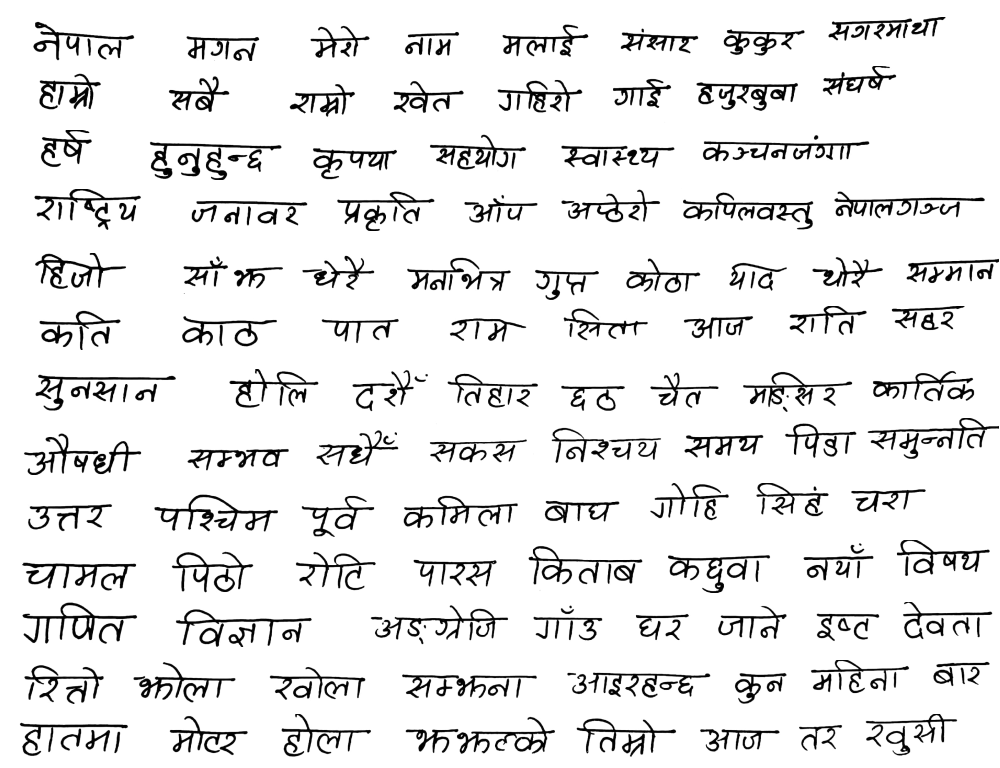 नेपाल मगन मेरो नाम मलाई संसार कुकुर सगरमाथा
हाम्रो सबै राम्रो खेत गहिरो गाई हजुरबुबा संघर्ष
हर्ष हुनुहुन्छ कृपया सहयोग स्वास्थ्य कञ्चनजंगा
राष्ट्रिय जनावर प्रकृति आँप अप्ठेरो कपिलवस्तु नेपालगञ्ज
हिजो साँझ धेरै मनभित्र गुप्त कोठा याद थोरै सम्मान
कति काठ पात राम सिता आज राति सहर
सुनसान होलि दशैँ तिहार छठ चैत मङ्सिर कार्तिक
औषधी सम्भव सधैँ सकस निश्चय समय पिडा समुन्नति
उत्तर पश्चिम पूर्व कमिला बाघ गोहि सिहं चरा
चामल पिठो रोटि पारस किताब कछुवा नयाँ विषय
गणित विज्ञान अङ्ग्रेजि गाँउ घर जाने इष्ट देवता
रित्तो झोला खोला सम्झना आइरहन्छ कुन महिना बार
हातमा मोटर होला झझल्को तिम्रो आज तर खुसी